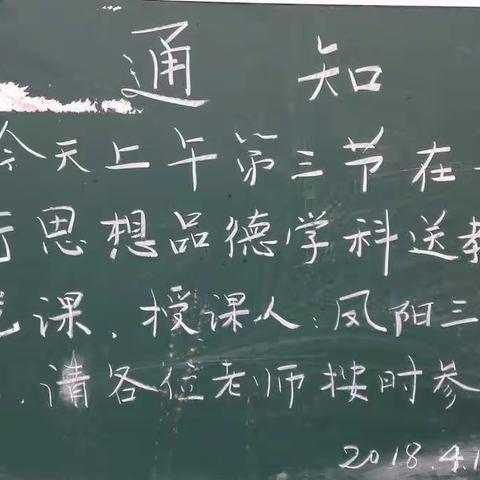 通 知
今天上午第三节在
行思想品德学科送教
课.授课人:凤阳三
.请各位老师按时参
2018.4.1